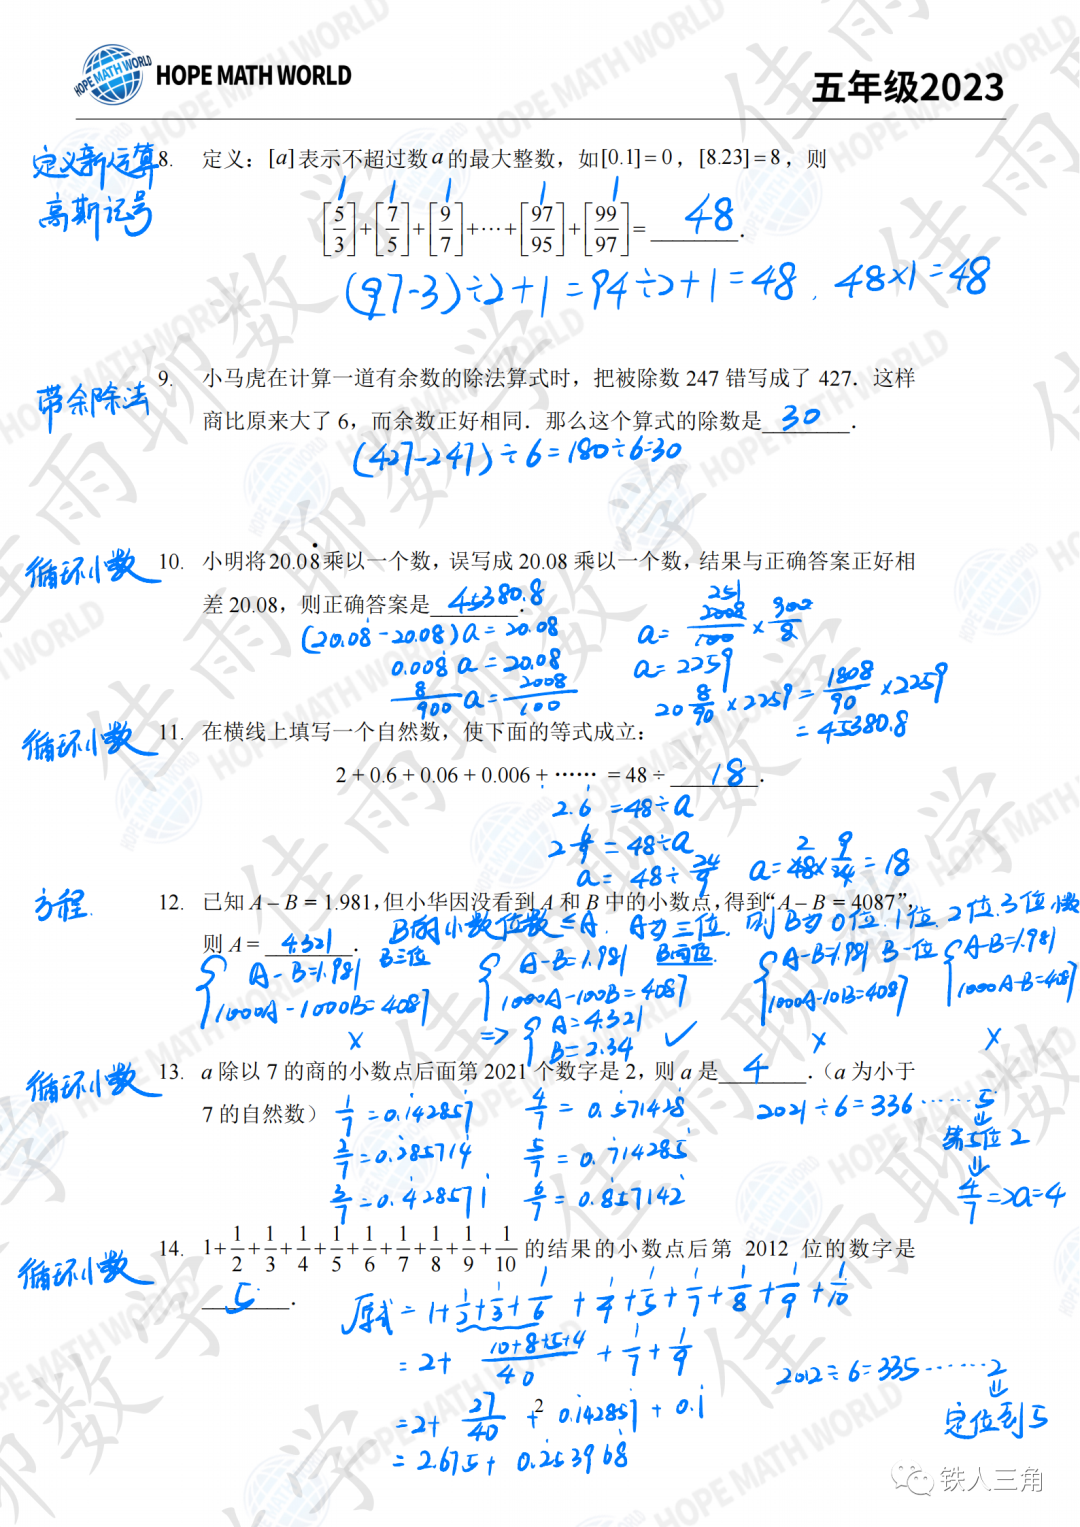 HOPE MATH WORLD
五年级2023
定义新运算
高斯记号
8. 定义：[a]表示不超过数a的最大整数，如[0.1]=0，[8.23]=8，则
1 1 1 1 1
[5/3]+[7/5]+[9/7]+…+[97/95]+[99/97]= 48 .
(97-3)÷2+1=94÷2+1=48. 48×1=48
带余除法
9. 小马虎在计算一道有余数的除法算式时，把被除数 247 错写成了 427．这样
商比原来大了 6，而余数正好相同．那么这个算式的除数是 30 ．
(427-247)÷6=180÷6=30
循环小数
10. 小明将20.08̇乘以一个数，误写成 20.08 乘以一个数，结果与正确答案正好相
差 20.08，则正确答案是 45380.8 ．
(20.08̇-20.08)a=20.08
0.008̇a=20.08
8/900 a=2008/100
a=2008/100×900/8
251
a=2259
20 8/90×2259=1808/90×2259
=45380.8
循环小数
11. 在横线上填写一个自然数，使下面的等式成立：
2+0.6+0.06+0.006+……=48÷ 18 ．
2.6̇=48÷a
2 6/9=48÷a
a=48÷24/9 a=48×9/24=18
2
方程.
12. 已知 A–B=1.981，但小华因没看到 A 和 B 中的小数点，得到“A–B=4087”，
则 A= 4.321 ．
B的小数位数≤A. A为三位. 则B为0位.1位.2位.3位小数
A-B=1.981 B三位
1000A-1000B=4087
×
A-B=1.981 B两位.
1000A-100B=4087
⇒ A=4.321
B=2.34 ✓
A-B=1.981 B一位
1000A-10B=4087
×
A-B=1.981
1000A-B=4087
×
循环小数
13. a 除以 7 的商的小数点后面第 2021 个数字是 2，则 a 是 4 ．（a 为小于
7 的自然数）
1/7=0.1̇42857̇ 4/7=0.5̇71428̇
2/7=0.2̇85714̇ 5/7=0.7̇14285̇
3/7=0.4̇28571̇ 6/7=0.8̇57142̇
2021÷6=336……5
⇓
第5位2
⇓
4/7⇒a=4
循环小数
14. 1+1/2+1/3+1/4+1/5+1/6+1/7+1/8+1/9+1/10 的结果的小数点后第 2012 位的数字是
5 ．
原式=1+1/2+1/3+1/6+1/4+1/5+1/7+1/8+1/9+1/10
=2+(10+8+5+4)/40+1/7+1/9
=2+27/40+0.1̇42857̇+0.1̇
=2.675+0.2̇53968̇
2012÷6=335……2
⇓
定位到5
2
铁人三角
佳雨聊数学